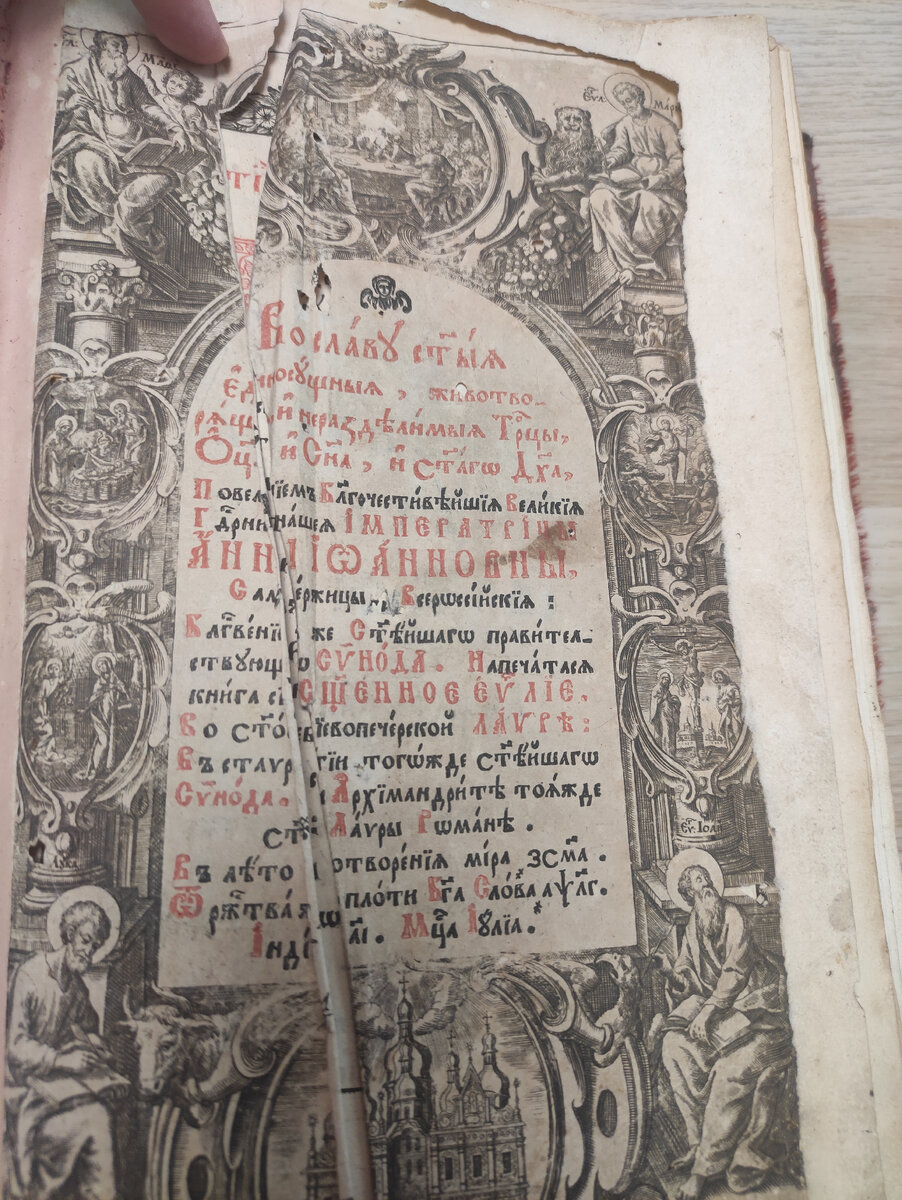 МАР
ті
Во сла́ву ст҃ы́ѧ
Є҆диносꙋ́щныѧ, животво-
и҆ нераздѣли́мыѧ Трⷪ҇цы,
Ѻ҆ц҃ и҆ Сн҃а, и҆ ст҃а́гѡ Дх҃а,
Повелѣ́нїемъ Бл҃гочести́вѣйшїѧ Вели́кїѧ
на́шеѧ І҆МПЕРАТРІ́ЦЫ
А҆́ННЫ І҆ѠА҆́ННОВНЫ,
Самоде́ржицы Всерѡссі́йскїѧ :
Бл҃гве́нїемъ же Ст҃ѣ́йшагѡ прави́тел-
ствꙋющагѡ СѴ҆НО́ДА. Напеча́тасѧ
кни́га сїѧ̀ СЩ҃Е́ННОЕ Е҆Ѵ҃ЛІЕ.
Во ст҃о́й Кїевопече́рской ЛА́ѴРѢ:
Въ ставропигїи тогѡ́жде ст҃ѣ́йшагѡ
Сѵ҆но́да. А҆рхїмандрі́тѣ тоѧ́жде
ст҃ы́ѧ Ла́ѵры Рѡма́нѣ.
Въ лѣ́то ѿ сотворе́нїѧ мі́ра ҂зсм҃а.
Ѿ рж҃тва́ же по пло́ти Бг҃а Сло́ва ҂аѱл҃г.
І҆нді́кта а҃і. Мц҃а І҆ꙋ́лїа.
ЛУКА
ЕѴ: ІОА